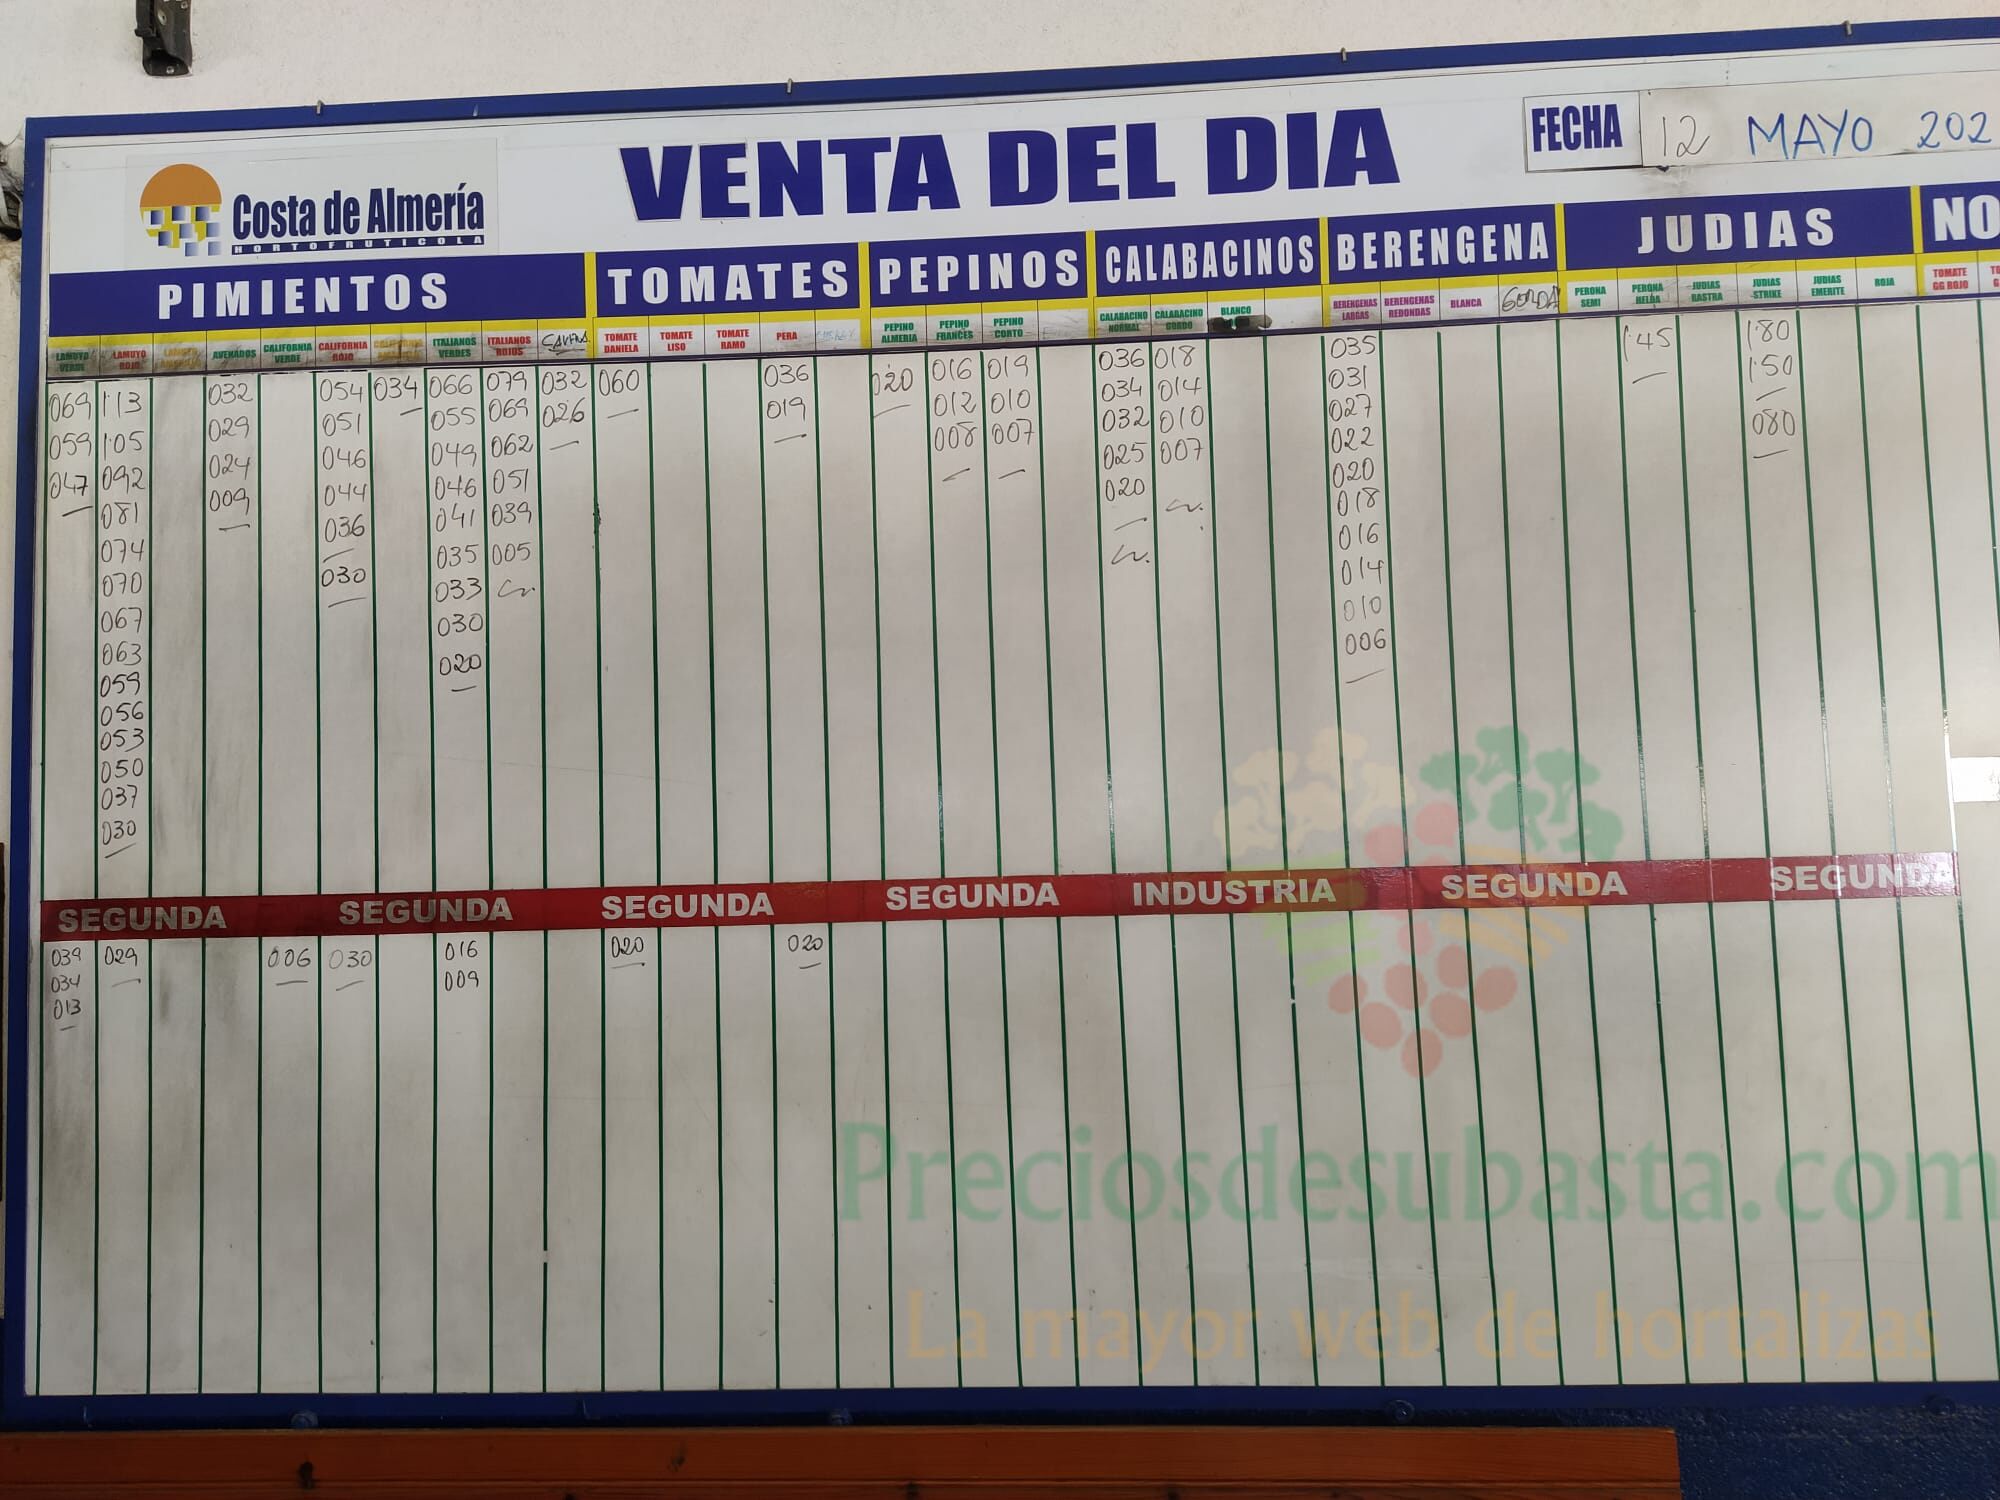 VENTA DEL DIA
FECHA 12 MAYO 202
Costa de Almería
HORTOFRUTICOLA
PIMIENTOS TOMATES PEPINOS CALABACINOS BERENGENA JUDIAS NO
LAMUYO VERDE
069
059
047
LAMUYO ROJO
1'13
1'05
092
081
074
070
067
063
059
056
053
050
037
030
LAMUYO AMARILLO
AVENADOS
032
029
024
009
CALIFORNIA VERDE
CALIFORNIA ROJO
054
051
046
044
036
030
CALIFORNIA AMARILLO
034
ITALIANOS VERDES
066
055
049
046
041
035
033
030
020
ITALIANOS ROJOS
079
069
062
051
039
005
032
026
TOMATE DANIELA
060
TOMATE LISO
TOMATE RAMO
PERA
036
019
PEPINO ALMERIA
020
PEPINO FRANCES
016
012
008
PEPINO CORTO
019
010
007
CALABACINO NORMAL
036
034
032
025
020
CALABACINO GORDO
018
014
010
007
BLANCO
BERENGENAS LARGAS
035
031
027
022
020
018
016
014
010
006
BERENGENAS REDONDAS
BLANCA
GORDA
PERONA SEMI
PERONA HELDA
1'45
JUDIAS RASTRA
JUDIAS STRIKE
1'80
1'50
080
JUDIAS EMERITE
ROJA
TOMATE GG ROJO
SEGUNDA SEGUNDA SEGUNDA SEGUNDA INDUSTRIA SEGUNDA SEGUNDA
039 029 006 030 016 020 020
034 009
013
Preciosdesubasta.com
La mayor web de hortalizas